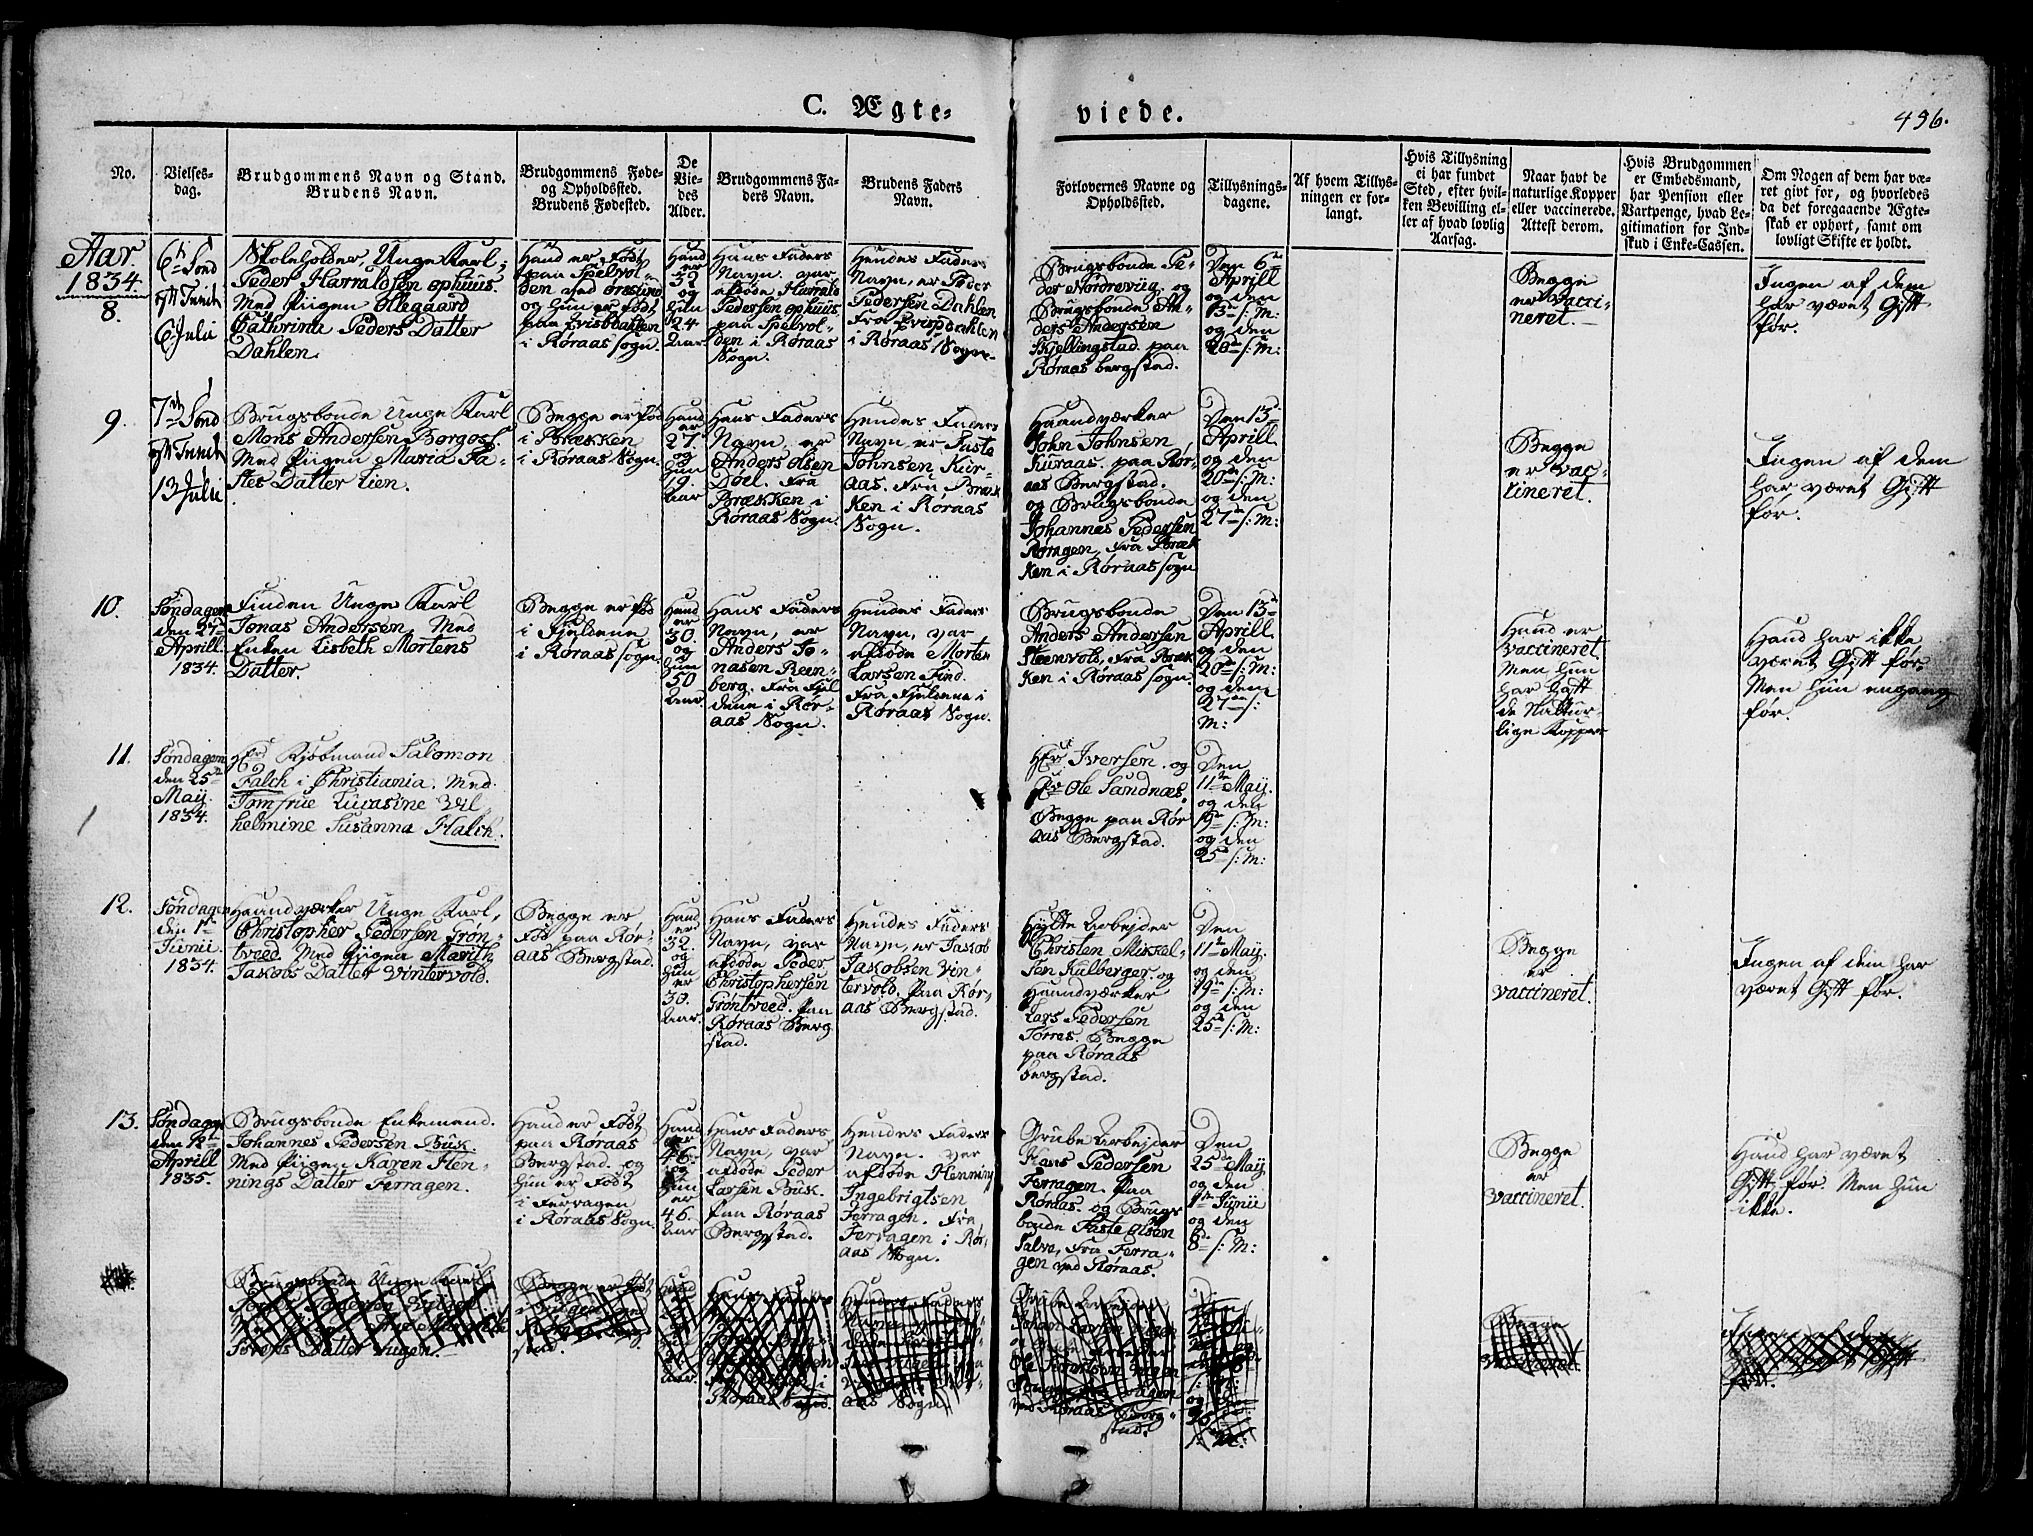 C. Ægte-
viede.
496.
No.
Vielses-
dag.
Brudgommens Navn og Stand.
Brudens Navn.
Brudgommens Føde-
og Opholdssted.
Brudens Fødested.
De
Vie-
des
Alder.
Brudgommens Fa-
ders Navn.
Brudens Faders
Navn.
Forlovernes Navne og
Opholdssted.
Tillysnings-
dagene.
Af hvem Tillys-
ningen er for-
langt.
Hvis Tillysning
ei har fundet
Sted, efter hvil-
ken Bevilling el-
ler af hvad lovlig
Aarsag.
Naar havt de
naturlige Kopper
eller vaccinerede.
Attest derom.
Hvis Brudgommen
er Embedsmand,
har Pension eller
Vartpenge, hvad Le-
gitimation for Ind-
skud i Enke-Cassen.
Om Nogen af dem har væ-
ret givt før, og hvorledes
da det foregaaende Ægte-
skab er ophørt, samt om
lovligt Skifte er holdt.
Aar
1834.
8.
6te Sønd
eft Trinit
6 Julii
Skoleholder, Unge Karl,
Peder Harraldsen ophuus.
Med Piigen Ollegaard
Cathrina Peders Datter
Dahlen.
Hand er Født
paa Spelvol-
den ved
og Hun er Født
paa Evisdallen
i Røraas Sogn.
Hand
er
32
og
Hun
24
Aar
Hans Faders
Navn. var
afdøde Harrald
Pedersen ophuus.
paa Spelvol-
den i Røraas
Sogn.
Hendes Faders
Navn, er Peder
Pedersen Dahlen
Fra Evisdahlen
i Røraas Sogn.
Brugsbonde Pe-
der Nordrevug. og
Brugsbonde An-
ders Andersen
Skjellingstad. paa
Røraas bergstad.
Den 6te
Aprill
og den
13de s: M:
og den
20de s: M:
Begge
er vacci-
neret.
Ingen af dem
har været Gift
før.
9.
7de Sønd
eft Trinit
13 Julii
Brugsbonde Unge Karl
Mons Andersen Borgos.
Med Piigen Maria Fa-
stes Datter Lien.
Begge er Fød
i Brækken
i Røraas Sogn.
Hand
er
27.
og
Hun
19.
Aar
Hans Faders
Navn, er
Anders Olsen
Døel. Fra
Brækken i
Røraas Sogn.
Hendes Faders
Navn er Faste
Johnsen Kur-
aas. Fra Bræk
ken i Røraas
Sogn.
Haandværker
John Johnsen
Kuraas. paa Rør-
aas Bergstad.
og Brugsbonde
Johannes Pedersen
Røragen, Fra Bræk
ken i Røraas sogn
Den 13de
Aprill
og den
20de s: M:
og den
27de s: M:
Begge
er vac-
cineret.
Ingen af dem
har været Gift
før.
10.
Søndagen
den 27de
Aprill.
1834.
Finden Unge Karl
Jonas Andersen, Med
Enken Lisbeth Mortens
Datter.
Begge er fød
i Fjeldene
i Røraas sogn.
Hand
er
30.
og
Hun
50
Aar.
Hans Faders
Navn, er
Anders Jo-
nasen Reen-
berg. Fra Fjel
dene i Rør-
aas Sogn.
Hendes Faders
Navn, var
afdøde Morten
Larsen Find.
Fra Fjeldene i
Røraas Sogn.
Brugsbonde
Anders Andersen
Steenvold, Fra Bræk
ken i Røraas sogn
Den 13de
Aprill.
og den
20de s: M:
og den
27de s:
M:
Hand er
vaccineret.
Men Hun
har haft
de Natur-
lige Kopper
Hand har ikke
været Gift før.
Men Hun engang
før.
11.
Søndagen
den 25de
May.
1834.
Hr Kjøbmand Salomon
Falch i Christiania. Med
Jomfrue Lucasine Vil-
helmine Susanna Falch.
Hr Iversen. og
Hr Ole Sandnæs.
Begge paa Rør
aas Bergstad.
Den
11te May.
og den
19de s: M:
og den
25de s: M:
12.
Søndagen
den 1ste
Junii
1834.
Haandværker Unge Karl,
Christopher Pedersen Grøn-
tveed. Med Piigen Marith
Jakobs Datter Vintervold.
Begge er
Fød paa Rør-
aas Bergstad.
Hand
er
32.
og
Hun
er
30.
Aar.
Hans Faders
Navn, var
afdøde Peder
Christophersen
Grøntveed. paa
Røraas Berg
stad.
Hendes Faders
Navn, er Jakob
Jakobsen Vin-
tervold. Paa Rør-
aas Bergstad.
Hytte Arbejder
Christen Mikkel-
sen Kulberger. og
Haandværker
Lars Pedersen
Torres. Begge
paa Røraas
bergstad.
Den
11te May.
og den
19de s: M:
og den
25de s: M:
Begge
er
vaccineret.
Ingen af dem har
været Gift før.
13.
Søndagen
den 12te
Aprill
1835.
Brugsbonde Enkemand.
Johannes Pedersen Buk.
Med Piigen Karen Hen-
nings Datter Ferragen.
Hand er Født
paa Røraas
Bergstad. og
Hun er Født
i Ferragen
i Røraas Sogn.
Hand
er
46.
og
Hun
er
46.
Aar
Hans Faders
Navn, var
afdøde Peder
Larsen Buk.
Paa Røraas
Bergstad.
Hendes Faders
Navn. var
afdøde Henning
Ingebrigtsen
Ferragen. Fra
Ferragen i Rør-
aas Sogn.
Grube Arbejder
Hans Pedersen
Ferragen. Paa
Røraas. og Brugs
bonde Faste Olsen
Galve, Fra Ferra-
gen ved Røraas.
Den
25de May.
og den
1ste Junii
og den
8de s: M:
Begge
er
vaccineret.
Hand har været
Gift før. Men Hun
ikke.
Brugsbonde Unge Karl
Datter
Begge er Født
stad.
Hans Faders
i
Røraas
Hendes Faders
aas Sogn.
Grube Arbejder
ved Røraas Berg-
stad.
Begge
vaccineret.
før.